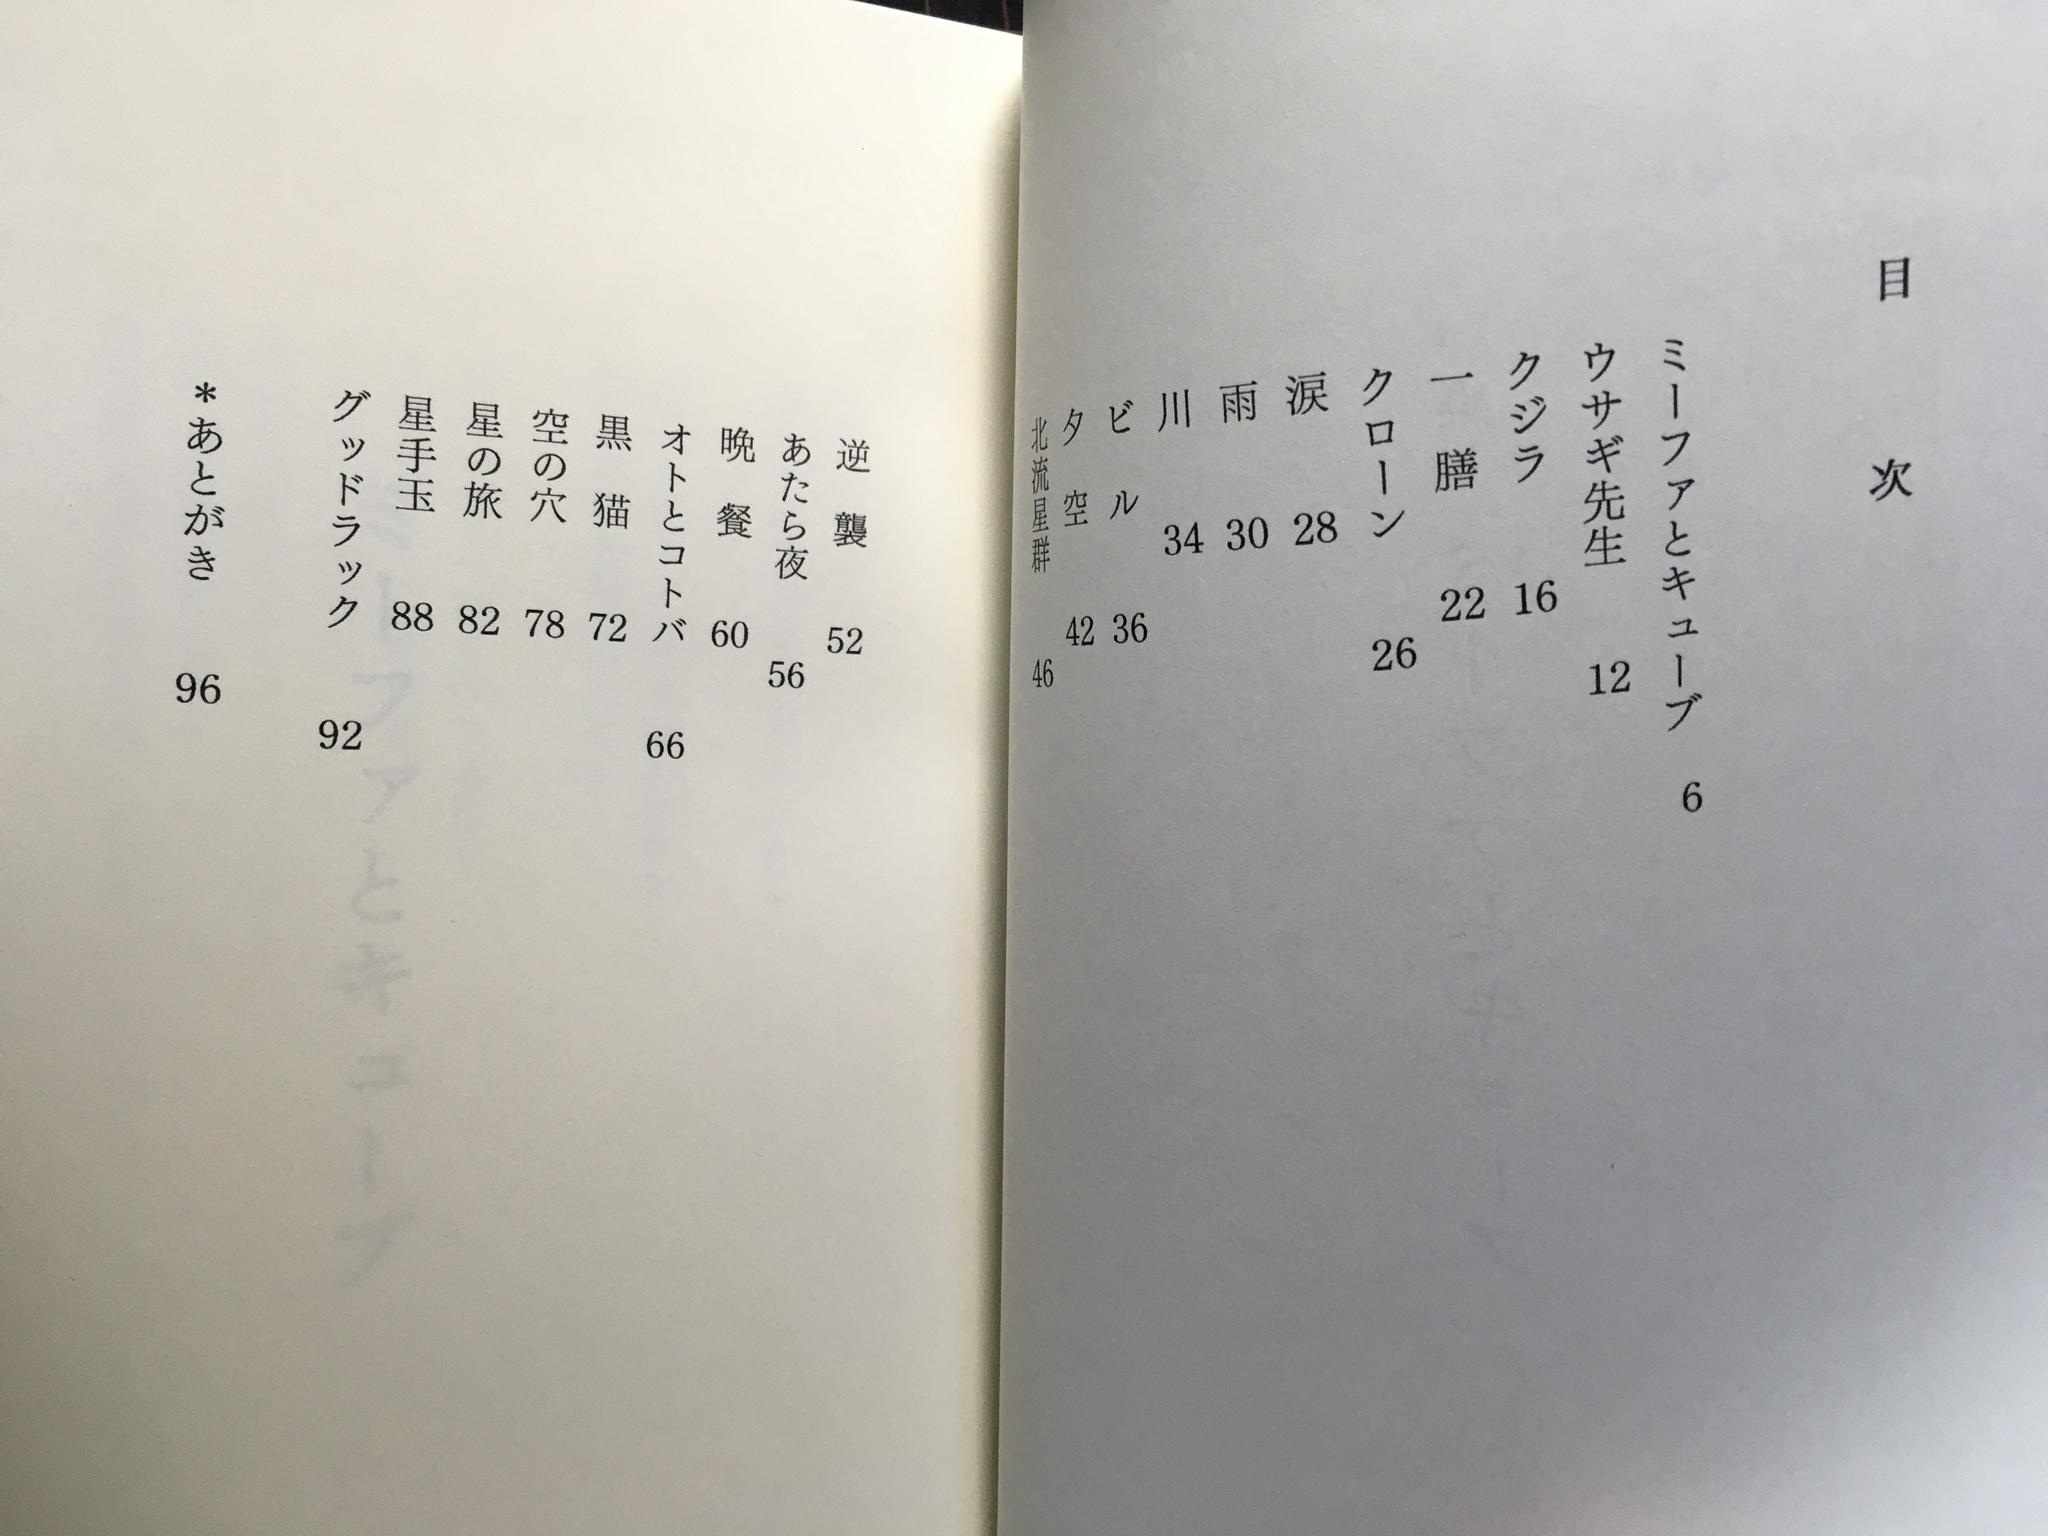 目次
ミーファとキューブ 6
ウサギ先生 12
クジラ 16
一膳 22
クローン 26
涙 28
雨 30
川 34
ビル 36
夕空 42
北流星群 46
逆襲 52
あたら夜 56
晩餐 60
オトとコトバ 66
黒猫 72
空の穴 78
星の旅 82
星手玉 88
グッドラック 92
*あとがき 96